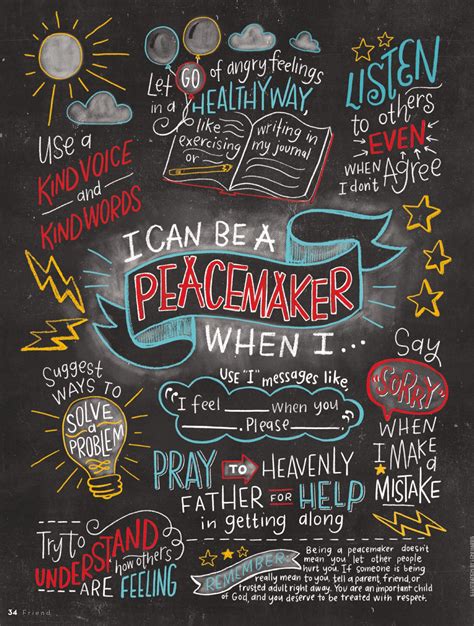 Let GO of angry feelings
in a HEALTHY WAY,
like
exercising
or
writing in
my journal
LISTEN
to others
EVEN
WHEN
I don't Agree
USE a
KIND VOICE
and
KIND WORDS
I CAN BE A
PEACEMAKER
WHEN I...
Suggest
WAYS TO
SOLVE
a
PROBLEM
USE "I" messages like,
I feel ____ when you
____. Please ____.
Say
"SORRY"
WHEN
I MAKE
a
MISTAKE
PRAY TO HEAVENLY
FATHER FOR HELP
in getting along
Try to
UNDERSTAND
how others
ARE FEELING
REMEMBER:
Being a peacemaker doesn't
mean you let other people
hurt you. If someone is being
really mean to you, tell a parent, friend, or
trusted adult right away. You are an important child
of God, and you deserve to be treated with respect.
34 Friend